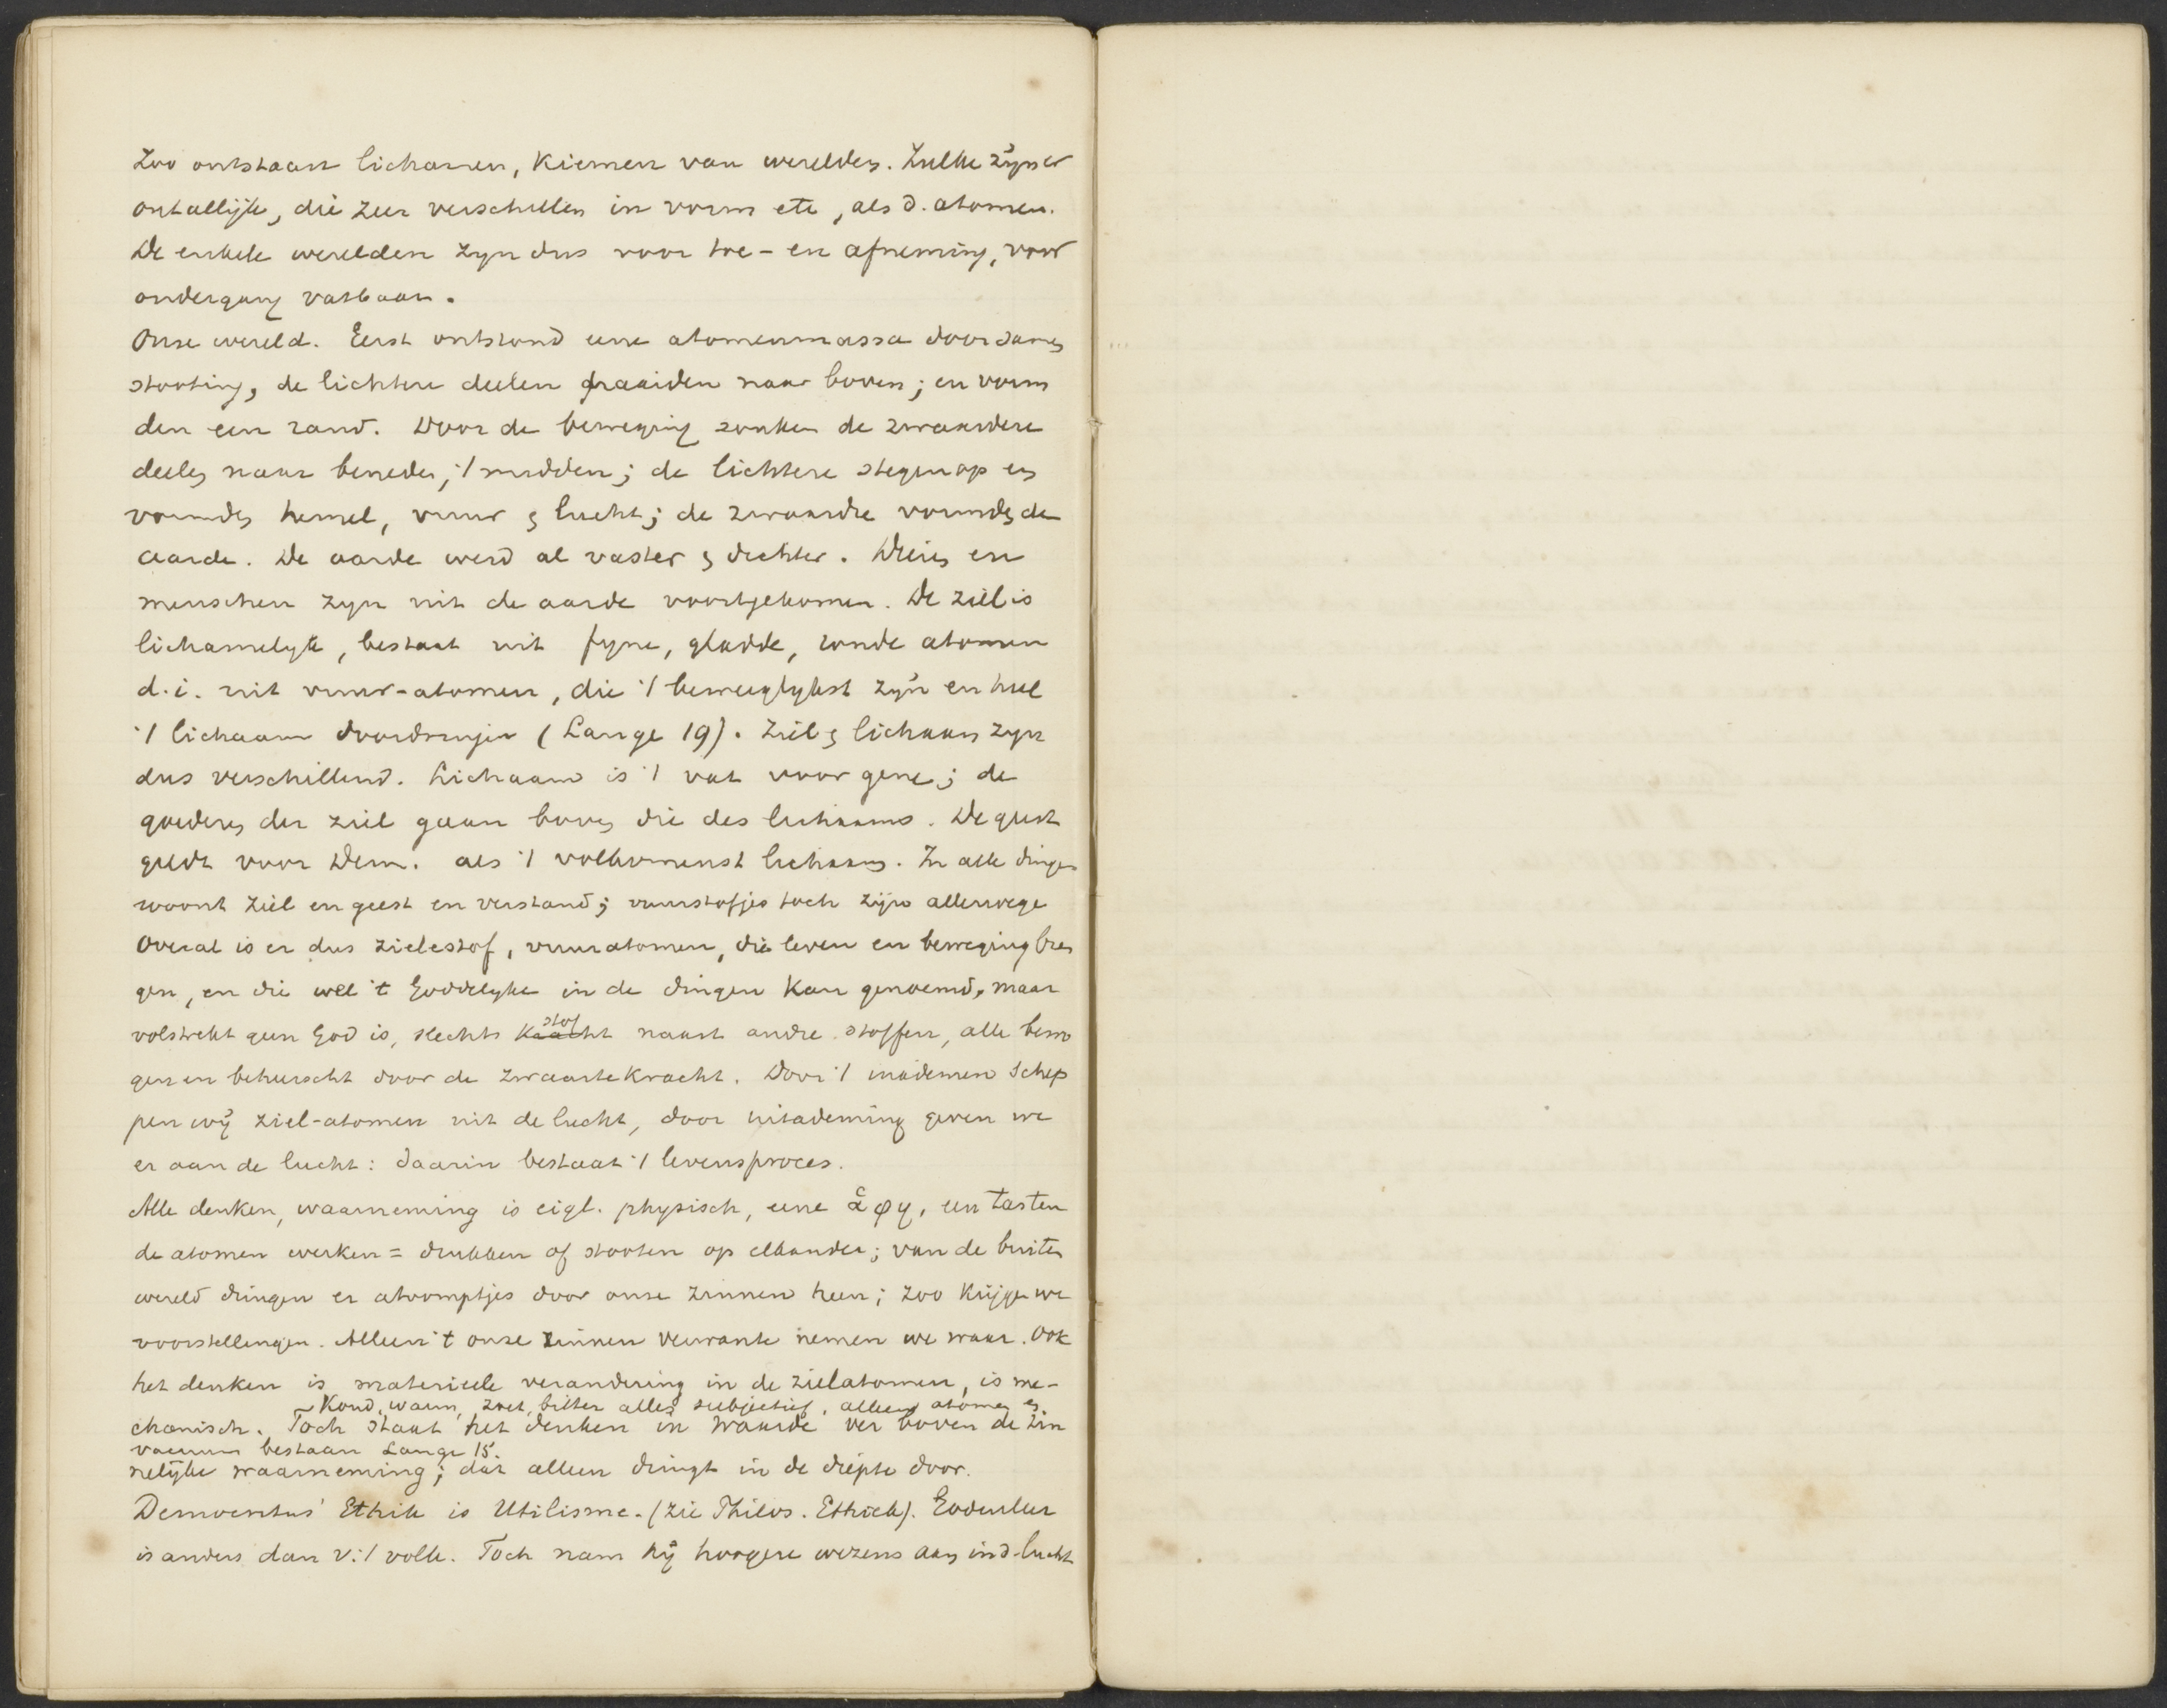 Zoo ontstaan lichamen, kiemen van werelden. Zulke zijn er
ontallijk, die zeer verschillen in vorm etc, als d. atomen.
De enkele werelden zyn dus voor toe- en afneming, voor
ondergang vatbaar.
Onze wereld. Eerst ontstond eene atomenmassa door samen
stooting, de lichtere deelen draaiden naar boven; en vorm
den een rand. Door de beweging zonken de zwaardere
deelen naar beneden, 't midden; de lichtere stegen op en
vormden hemel, vuur & lucht; de zwaardre vormden de
aarde. De aarde werd al vaster & dichter. Dieren en
menschen zyn uit de aarde voortgekomen. De ziel is
lichamelyk, bestaat uit fyne, gladde, ronde atomen
d.i. uit vuur-atomen, die 't beweeglykst zyn en heel
't lichaam doordringen (Lange 19). Ziel & lichaam zyn
dus verschillend. Lichaam is 't vat voor gene; de
goederen der ziel gaan boven die des lichaams. De geest
geldt voor Dem. als 't volkomenst lichaam. In alle dingen
woont ziel en geest en verstand; vuurstofjes toch zijn allerwege
Overal is er dus zielestof, vuuratomen, die leven en beweging bren
gen, en die wel 't Goddelyke in de dingen kan genoemd, maar
volstrekt geen God is, slechts kracht stof naast andre stoffen, alle bewo
gen en beheerscht door de zwaartekracht. Door 't inademen schep
pen wij ziel-atomen uit de lucht, door uitademing geven we
er aan de lucht: daarin bestaat 't levensproces.
Alle denken, waarneming is eigl. physisch, eene ἁφη, een tasten
de atomen werken = drukken of stooten op elkander; van de buiten
wereld dringen er atoomptjes door onze zinnen heen; zoo krijgen we
voorstellingen. Alleen 't onze zinnen verwante nemen we waar. Ook
het denken is materieele verandering in de zielatomen, is me-
Koud, warm, zoet, bitter alles subjectief, alleen atomen en
chanisch. Toch staat het denken in waarde ver boven de zin
vacuum bestaan Lange 15.
nelijke waarneming; dàt alleen dringt in de diepte door.
Democritus' Ethik is Utilisme. (zie Philos. Ethiek). Godenleer
is anders dan v. 't volk. Toch nam hij hoogere wezens aan in d. lucht